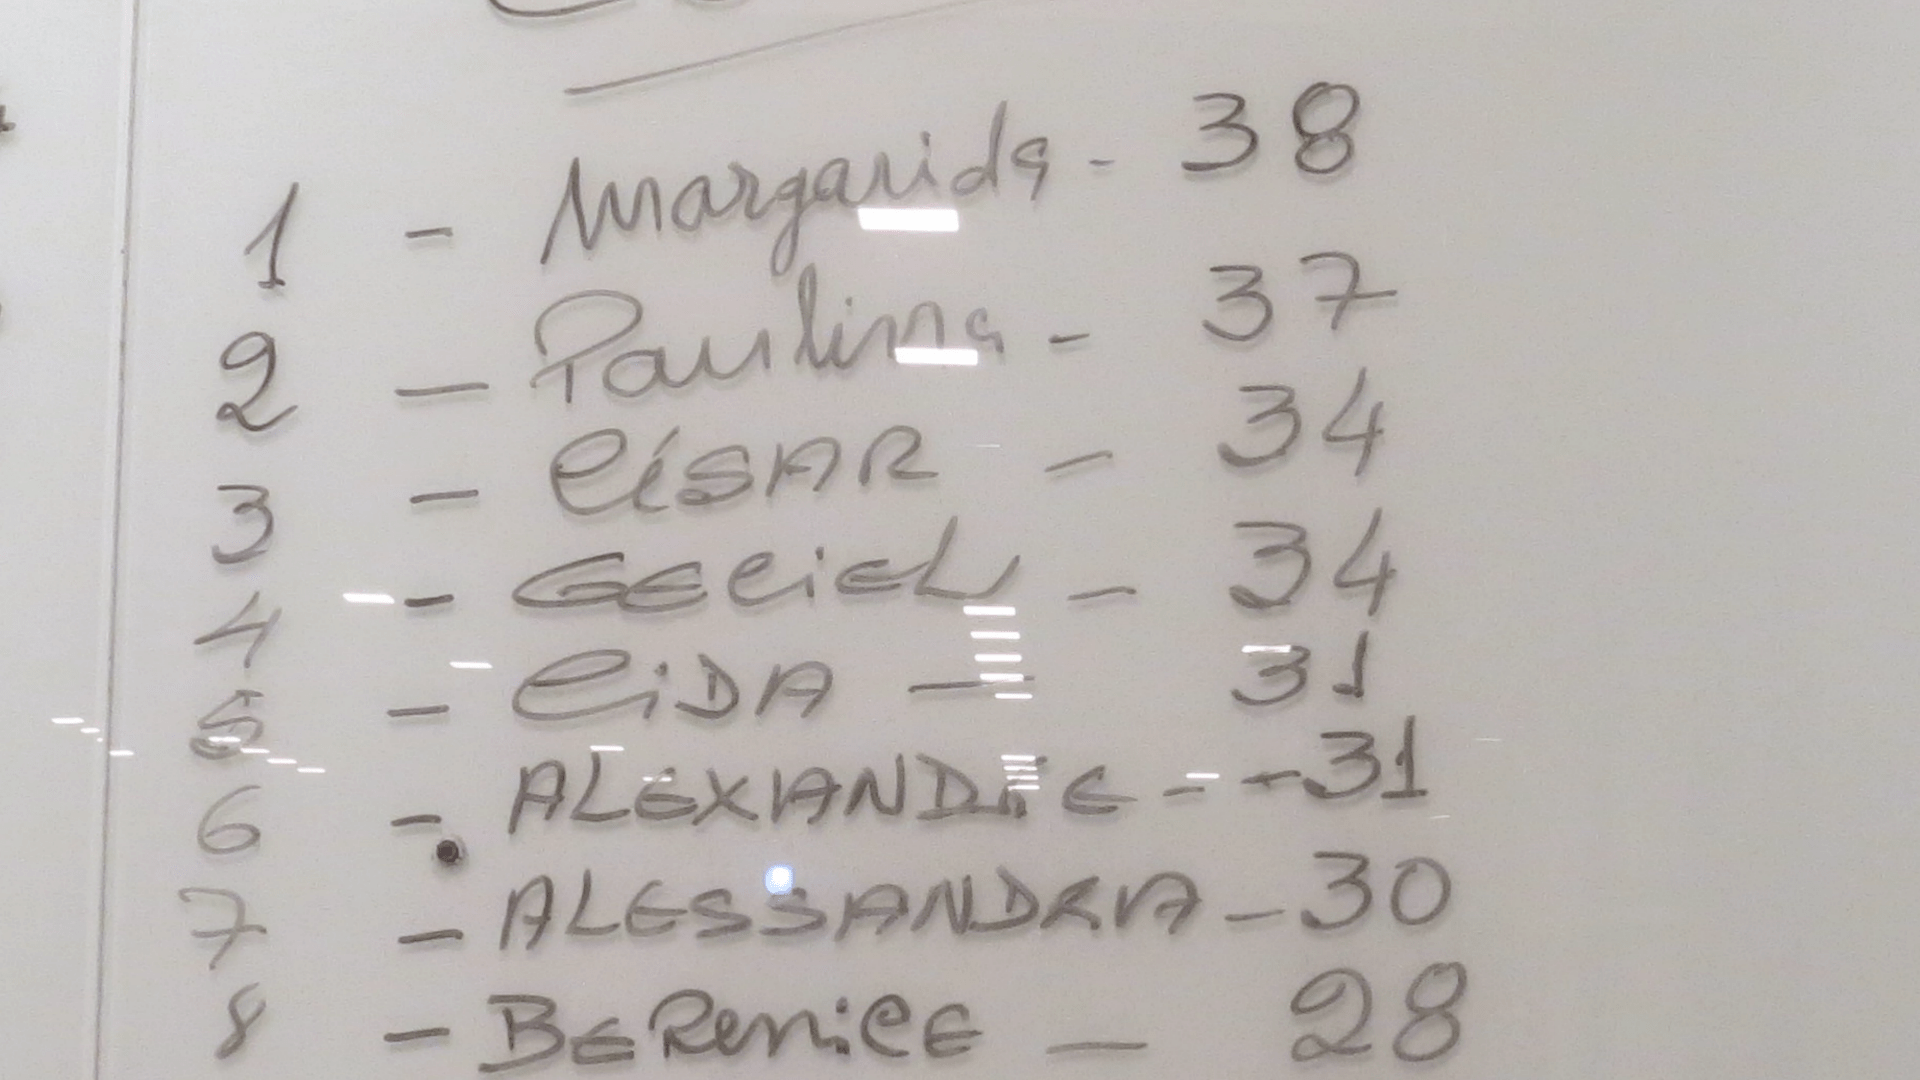 1 - Margarida - 38
2 - Paulina - 37
3 - CÉSAR - 34
4 - GECIEL - 34
5 - CIDA - 31
6 - ALEXANDRE - 31
7 - ALESSANDRA - 30
8 - BERENICE - 28